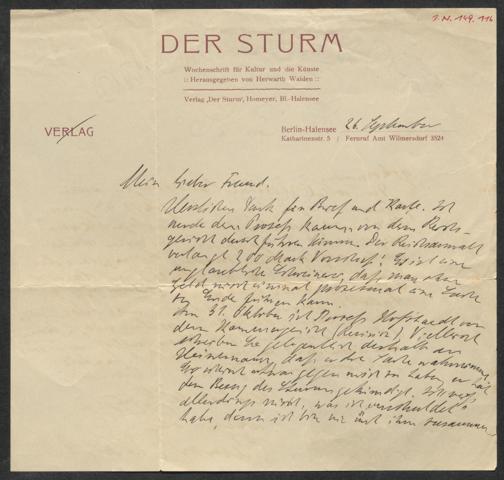 I.N. 149.116
DER STURM
Wochenschrift für Kultur und die Künste
:: Herausgegeben von Herwarth Walden ::
Verlag ‚Der Sturm‘, Homeyer, Bl.-Halensee
VERLAG
Berlin-Halensee 26. September
Katharinenstr. 5 / Fernruf Amt Wilmersdorf 3524
Mein lieber Freund.
Herzlichen Dank für Brief und Karte. Ich
werde den Prozess kaum vor dem Reichs-
gericht durchführen können. Der Reichsanwalt
verlangt 200 Mark Vorschuß! Es ist eine
unglaubliche, daß man ohne
Geld nicht einmal prozessual eine Sache
zu Ende führen kann.
Am 31. Oktober ist Prozess vor
dem Kammergericht. Vielleicht
schreiben Sie gelegentlich deshalb an
, daß er die Sache wahrnimmt.
Er scheint etwas gegen mich zu haben, er hat
den Bezug des Sturm gekündigt. Ich weiß
allerdings nicht, was ich „verschuldet“
habe, denn ich bin nie mit ihm zusammen